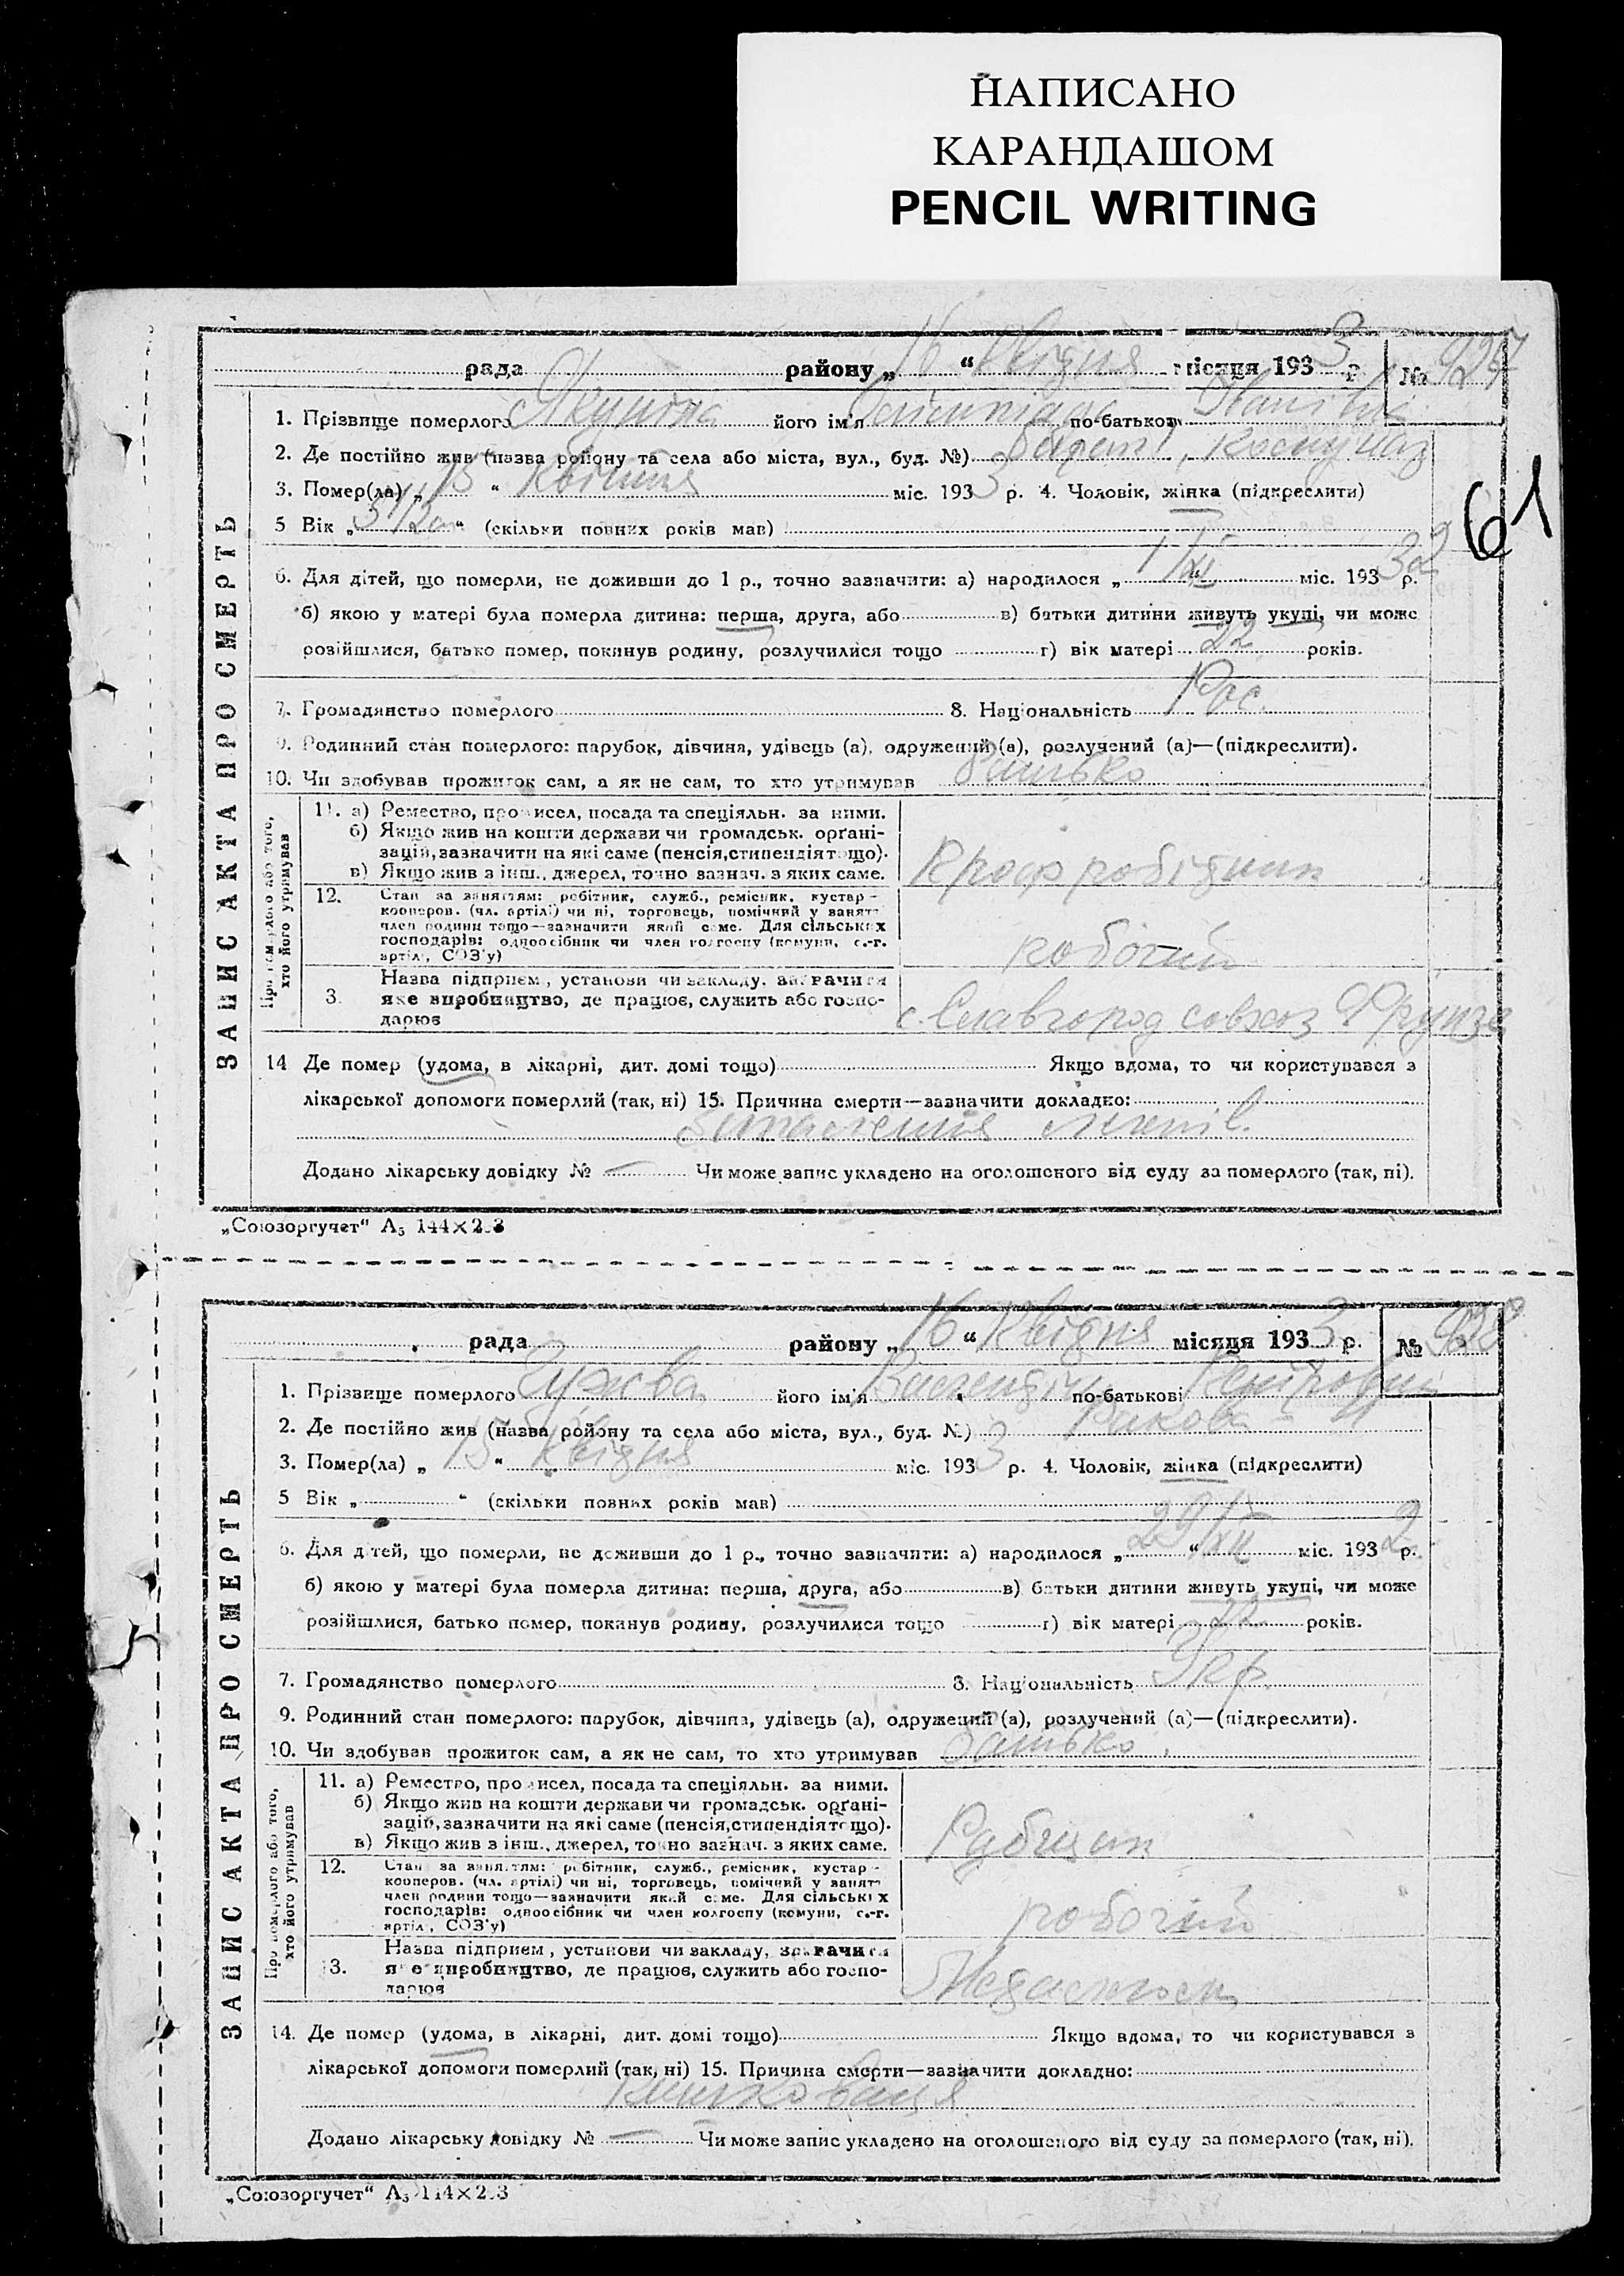 НАПИСАНО
КАРАНДАШОМ
PENCIL WRITING
61
ЗАПИС АКТА ПРО СМЕРТЬ
рада району „ 16 “ Квітня місяця 1933 р. №
1. Прізвище померлого Якуніна його ім'я по-батькові Іванівна
2. Де постійно жив (назва району та села або міста, вул., буд. №)
3. Помер(ла) „ 15 “ Квітня міс. 1933 р. 4. Чоловік, жінка (підкреслити)
5 Вік „ “ (скільки повних років мав)
6. Для дітей, що померли, не доживши до 1 р., точно зазначити: а) народилося „ 1 “ міс. 1932 р.
б) якою у матері була померла дитина: перша, друга, або в) батьки дитини живуть укупі, чи може
розійшлися, батько помер, покинув родину, розлучилися тощо г) вік матері 22 років.
7. Громадянство померлого 8. Національність Рос.
9. Родинний стан померлого: парубок, дівчина, удівець (а), одружений (а), розлучений (а)—(підкреслити).
10. Чи здобував прожиток сам, а як не сам, то хто утримував батько
Про померлого або того, хто його утримував
11. а) Ремество, промисел, посада та спеціяльн. за ними.
б) Якщо жив на кошти держави чи громадськ. орґані-
зацій, зазначити на які саме (пенсія, стипендія тощо).
в) Якщо жив з інш. джерел, точно зазнач. з яких саме.
робітник
12. Стан за заняттям: робітник, служб., ремісник, кустар -
кооперов. (чл. артілі) чи ні, торговець, помічний у занятт
член родини тощо—зазначити який саме. Для сільських
господарів: одноосібник чи член колгоспу (комуни, с.-г.
артілі, СОЗ'у)
робочий
3. Назва підприєм., установи чи закладу, зазначити
яке виробництво, де працює, служить або госпо-
дарює
с. Славгород совхоз Фрунзе
14 Де помер (удома, в лікарні, дит. домі тощо) Якщо вдома, то чи користувався з
лікарської допомоги померлий (так, ні) 15. Причина смерти—зазначити докладно:
запалення легенів.
Додано лікарську довідку № — Чи може запис укладено на оголошеного від суду за померлого (так, ні).
„Союзоргучет“ А₅ 144×2.3
ЗАПИС АКТА ПРО СМЕРТЬ
рада району „ 16 “ Квітня місяця 1933 р. №
1. Прізвище померлого його ім'я Валентіна по-батькові
2. Де постійно жив (назва району та села або міста, вул., буд. №)
3. Помер(ла) „ 15 “ Квітня міс. 1933 р. 4. Чоловік, жінка (підкреслити)
5 Вік „ “ (скільки повних років мав)
6. Для дітей, що померли, не доживши до 1 р., точно зазначити: а) народилося „ 29 “ XII міс. 1932 р.
б) якою у матері була померла дитина: перша, друга, або в) батьки дитини живуть укупі, чи може
розійшлися, батько помер, покинув родину, розлучилися тощо г) вік матері років.
7. Громадянство померлого 8. Національність Укр.
9. Родинний стан померлого: парубок, дівчина, удівець (а), одружений (а), розлучений (а)—(підкреслити).
10. Чи здобував прожиток сам, а як не сам, то хто утримував батько.
Про померлого або того, хто його утримував
11. а) Ремество, промисел, посада та спеціяльн. за ними.
б) Якщо жив на кошти держави чи громадськ. орґані-
зацій, зазначити на які саме (пенсія, стипендія тощо).
в) Якщо жив з інш. джерел, точно зазнач. з яких саме.
12. Стан за заняттям: робітник, служб., ремісник, кустар -
кооперов. (чл. артілі) чи ні, торговець, помічний у занятт
член родини тощо—зазначити який саме. Для сільських
господарів: одноосібник чи член колгоспу (комуни, с.-г.
артілі, СОЗ'у)
робочий
3. Назва підприєм., установи чи закладу, зазначити
яке виробництво, де працює, служить або госпо-
дарює
14. Де помер (удома, в лікарні, дит. домі тощо) Якщо вдома, то чи користувався з
лікарської допомоги померлий (так, ні) 15. Причина смерти—зазначити докладно:
Додано лікарську довідку № — Чи може запис укладено на оголошеного від суду за померлого (так, ні).
„Союзоргучет“ А₅ 114×2.3